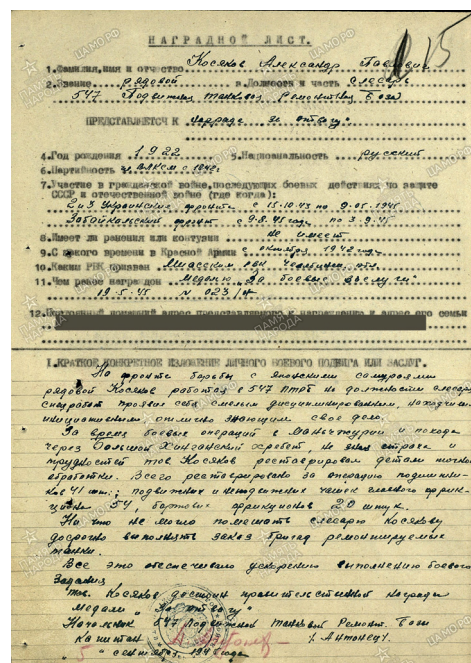 15
НАГРАДНОЙ ЛИСТ.
1.Фамилия,имя и отчество Косяков Александр Павлович
2.Звание рядовой 3.Должность и часть слесарь
547 Подвижная танковая Ремонтная База
ПРЕДСТАВЛЯЕТСЯ К награде "За отвагу"
4.Год рождения 1922 5.Национальность русский
6.Партийность ВЛКСМ с 1942г.
7.Участие в гражданской войне,последующих боевых действиях по защите
СССР и отечественной войне (где когда):
2 и 3 Украинские фронты с 15.10.43 по 9.05.1945
Забайкальский фронт с 9.8.45 года по 3.9.45
8.Имеет ли ранения или контузии не имеет
9.С какого времени в Красной Армии с октября 1942 года
10.Каким РВК призван Миасским рвк Челябинск. обл.
11.Чем ранее награжден Медаль "За боевые заслуги"
19.5.45 N 023/н
12.Постоянный домашний адрес представленного к награждению и адрес его семьи
I.КРАТКОЕ КОНКРЕТНОЕ ИЗЛОЖЕНИЕ ЛИЧНОГО БОЕВОГО ПОДВИГА ИЛИ ЗАСЛУГ.
На фронте борьбы с японскими самураями
рядовой Косяков работая в 547 ПТРБ на должности слесаря
проявил себя смелым дисциплинированным, находчивым
инициативным отлично знающим свое дело.
За время боевых операций в Маньчжурии и похода
через Большой Хинганский хребет, не зная страха и
трудностей тов Косяков реставрировал детали
обработки. Всего реставрировано за операцию подшипни-
ков 41 шт.; подвижных и неподвижных чашек главного фрик-
циона 54, бортовых фрикционов 20 штук.
Ни что не могло помешать слесарю Косякову
досрочно выполнять заказ бригад ремонтируемых
танки.
Все это обеспечивало ускорению выполнению боевого
Задания
тов. Косяков достоин правительственной награды
Медали "За отвагу"
Начальник 547 подвижной танковой Ремонт. Базы
капитан /Антонец/.
"5" сентября 1945 года